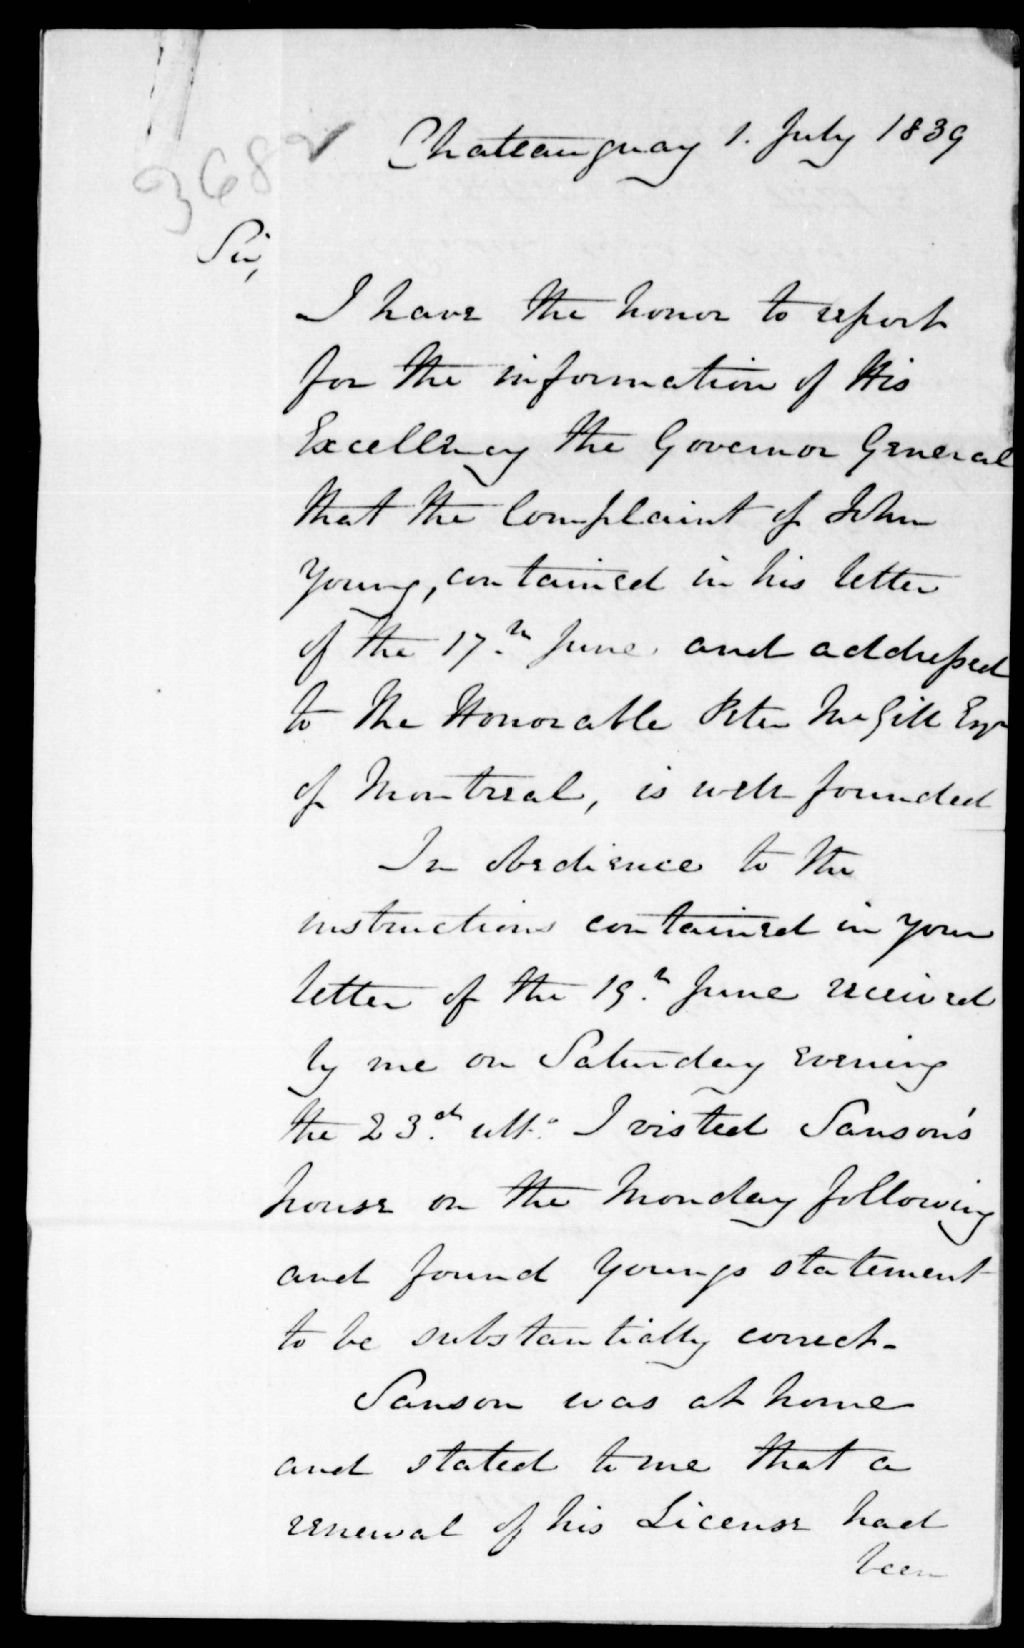 Chateauguay 1. July 1839
3682
Sir,
I have the honor to report
for the information of His
Excellency the Governor General
that the Complaint of John
Young, contained in his letter
of the 17.th June and addressed
to the Honorable Peter McGill Esqr
of Montreal, is well founded
In obedience to the
instructions contained in your
letter of the 19.th June received
by me on Saturday evening
the 23.rd ulto. I visted Sanson's
house on the Monday following
and found Youngs statement
to be substantially correct-
Sanson was at home
and stated to me that a
renewal of his License had
been